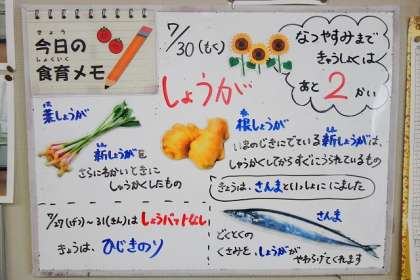 きょう
今日の
しょくいく
食育メモ
7/30(もく)
なつやすみまで
きゅうしょくは
あと2かい
しょうが
葉しょうが
新しょうがを
さらにわかいときに
しゅうかくしたもの
根しょうが
いまのじきにでている新しょうがは、
しゅうかくしてからすぐにうられているもの
きょうは、さんまといっしょににました
7/27(げつ)〜31(きん)はしょうパットなし
きょうは、ひじきのり
さんま
どくとくの
くさみを、しょうがが
やわらげてくれます